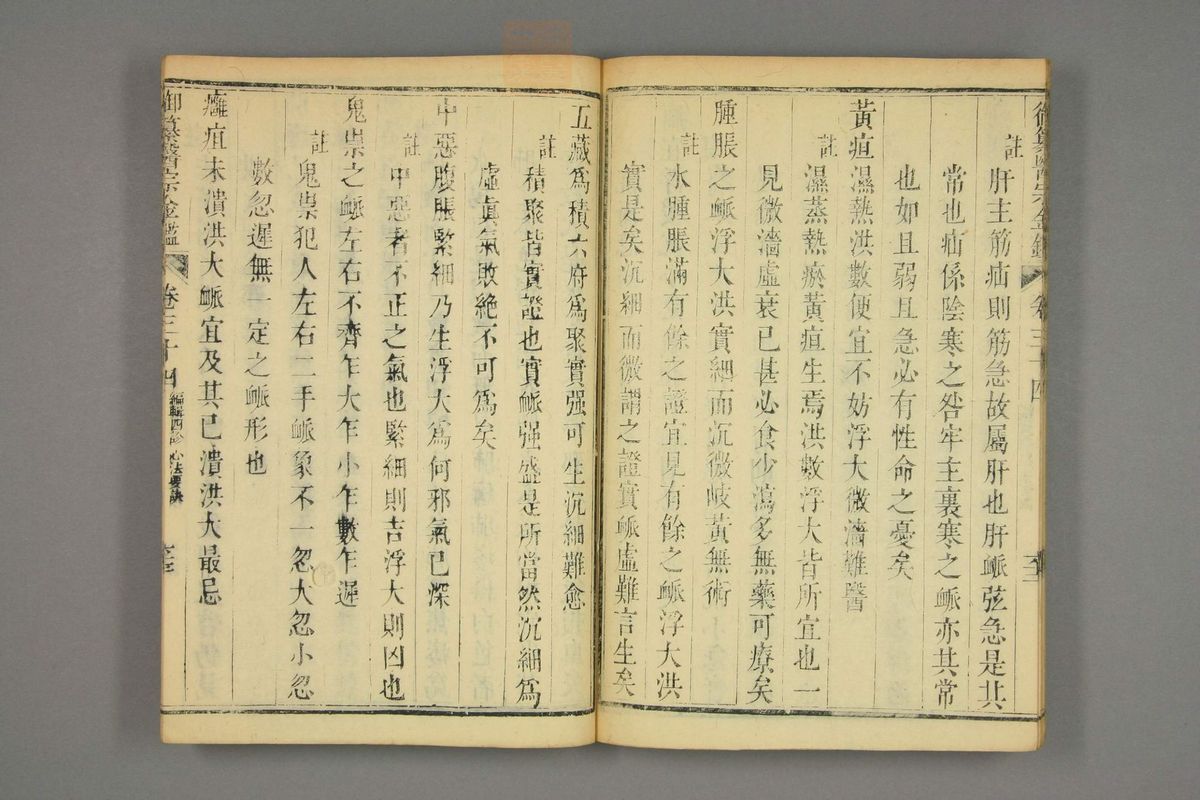 御纂醫宗金鑑 卷三十四
註 肝主筋疝則筋急故屬肝也肝脈弦急是其
常也疝係陰寒之咎牢主裏寒之脈亦其常
也如且弱且急必有性命之憂矣
黃疸濕熱洪數便宜不妨浮大微濇難醫
註 濕蒸熱瘀黃疸生焉洪數浮大皆所宜也一
見微濇虛衰已甚必食少瀉多無藥可療矣
腫脹之脈浮大洪實細而沉微岐黃無術
註 水腫脹滿有餘之證宜見有餘之脈浮大洪
實是矣沉細而微謂之證實脈虛難言生矣
五藏為積六府為聚實强可生沉細難愈
註 積聚皆實證也實脈强盛是所當然沉細為
虛眞氣敗絶不可為矣
中惡腹脹緊細乃生浮大為何邪氣已深
註 中惡者不正之氣也緊細則吉浮大則凶也
鬼祟之脈左右不齊乍大乍小乍數乍遲
註 鬼祟犯人左右二手脈象不一忽大忽小忽
數忽遲無一定之脈形也
癰疽未潰洪大脈宜及其已潰洪大最忌
御纂醫宗金鑑 卷三十四 編輯四診心法要訣